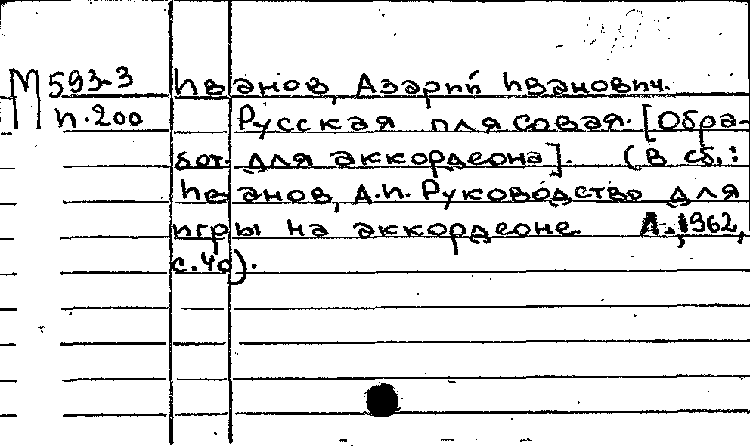 М 593-3 Иванов, Азарий Иванович.
И.200 Русская плясовая. [Обра-
бот. для аккордеона]. (В сб.:
Иванов, А.И. Руководство для
игры на аккордеоне. Л., 1962,
с.40).